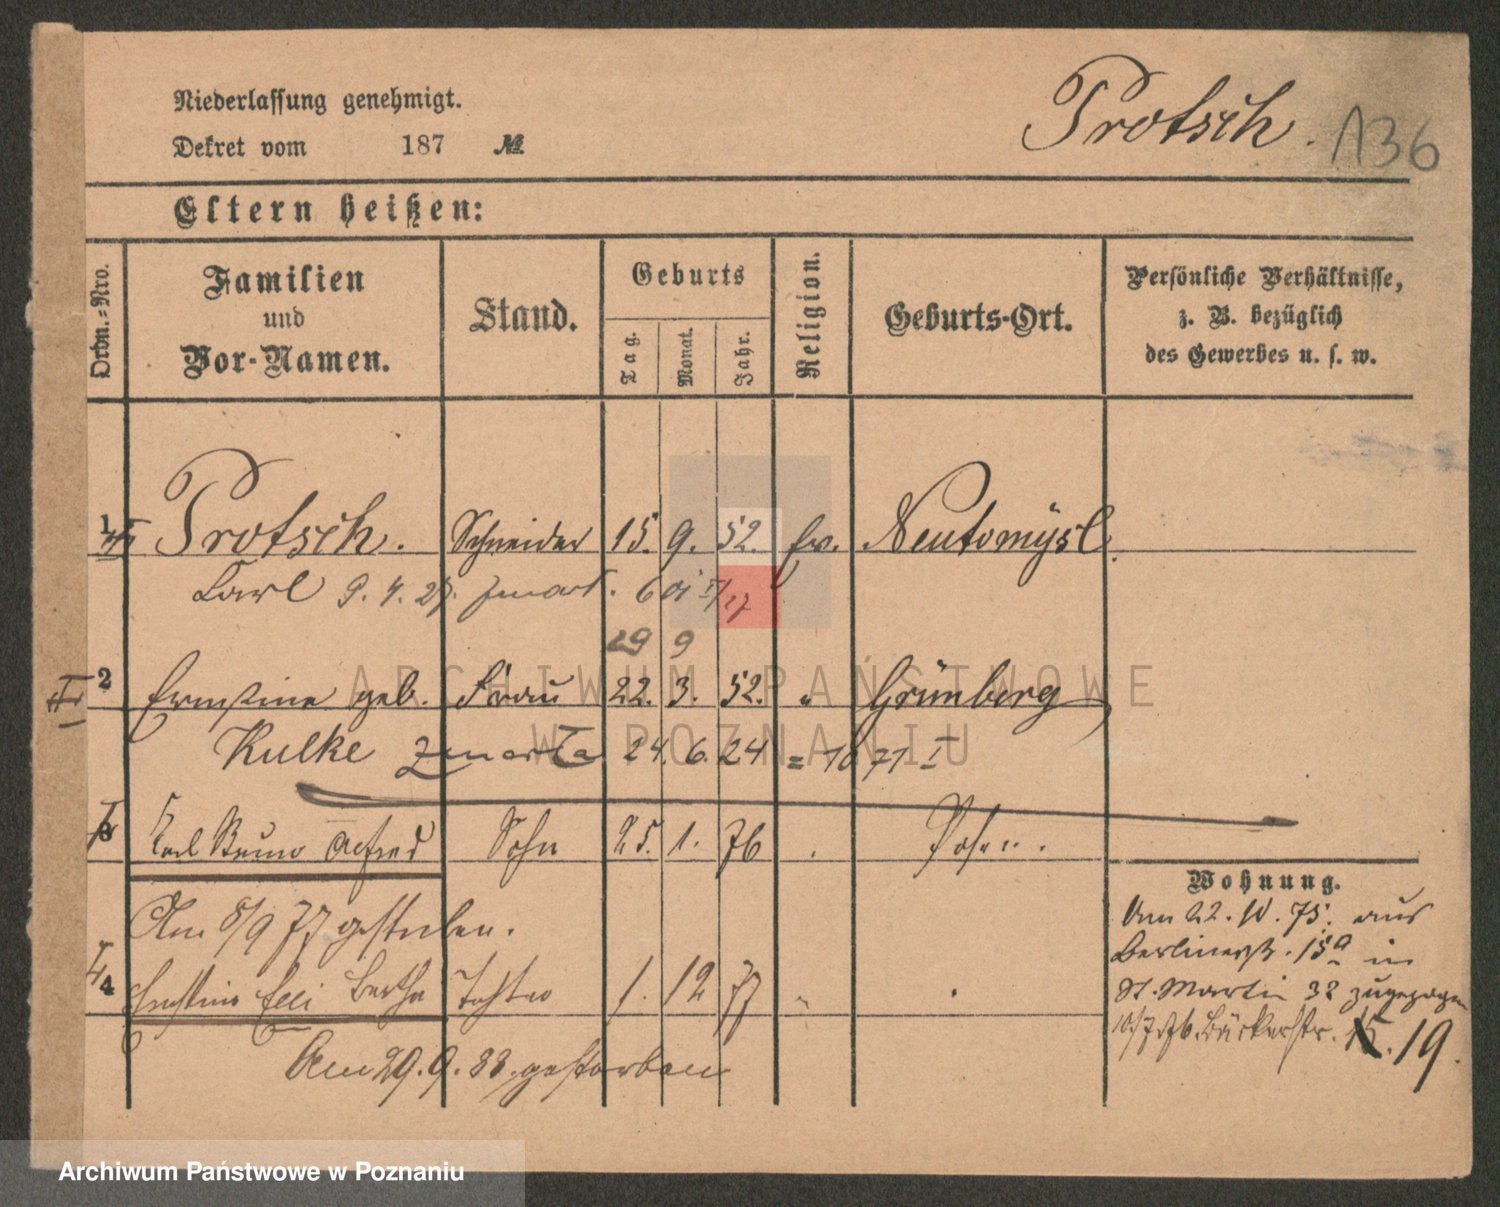 Niederlassung genehmigt.
Dekret vom 187 №
Protsch. 136
Eltern heißen:
Ordn.=Nro.
Familien
und
Vor-Namen.
Stand.
Geburts
Tag.
Monat.
Jahr.
Religion.
Geburts-Ort.
Persönliche Verhältnisse,
z. B. bezüglich
des Gewerbes u. s. w.
1 Protsch. Schneider 15. 9. 52. ev. Neutomysl
Carl 9. 4. 27. zmarł.
29 9
2 Ernestine geb. Frau 22. 3. 52. " Grünberg
Kulke zmarła 24. 6. 24 = 1071 I
3 Karl Bruno Alfred Sohn 25. 1. 76 Posen.
Am 8/9 77 gestorben.
4 Ernstine Elli Bertha Tochter 1. 12 77 "
Am 29. 9. 88. gestorben
Wohnung.
Am 22. 10. 75. aus
Berlinerstr. 15a in
St. Martin 32 zugezogen
10/7 76. Bäckerstr. 15. 19.
ARCHIWUM PAŃSTWOWE
W POZNANIU
Archiwum Państwowe w Poznaniu